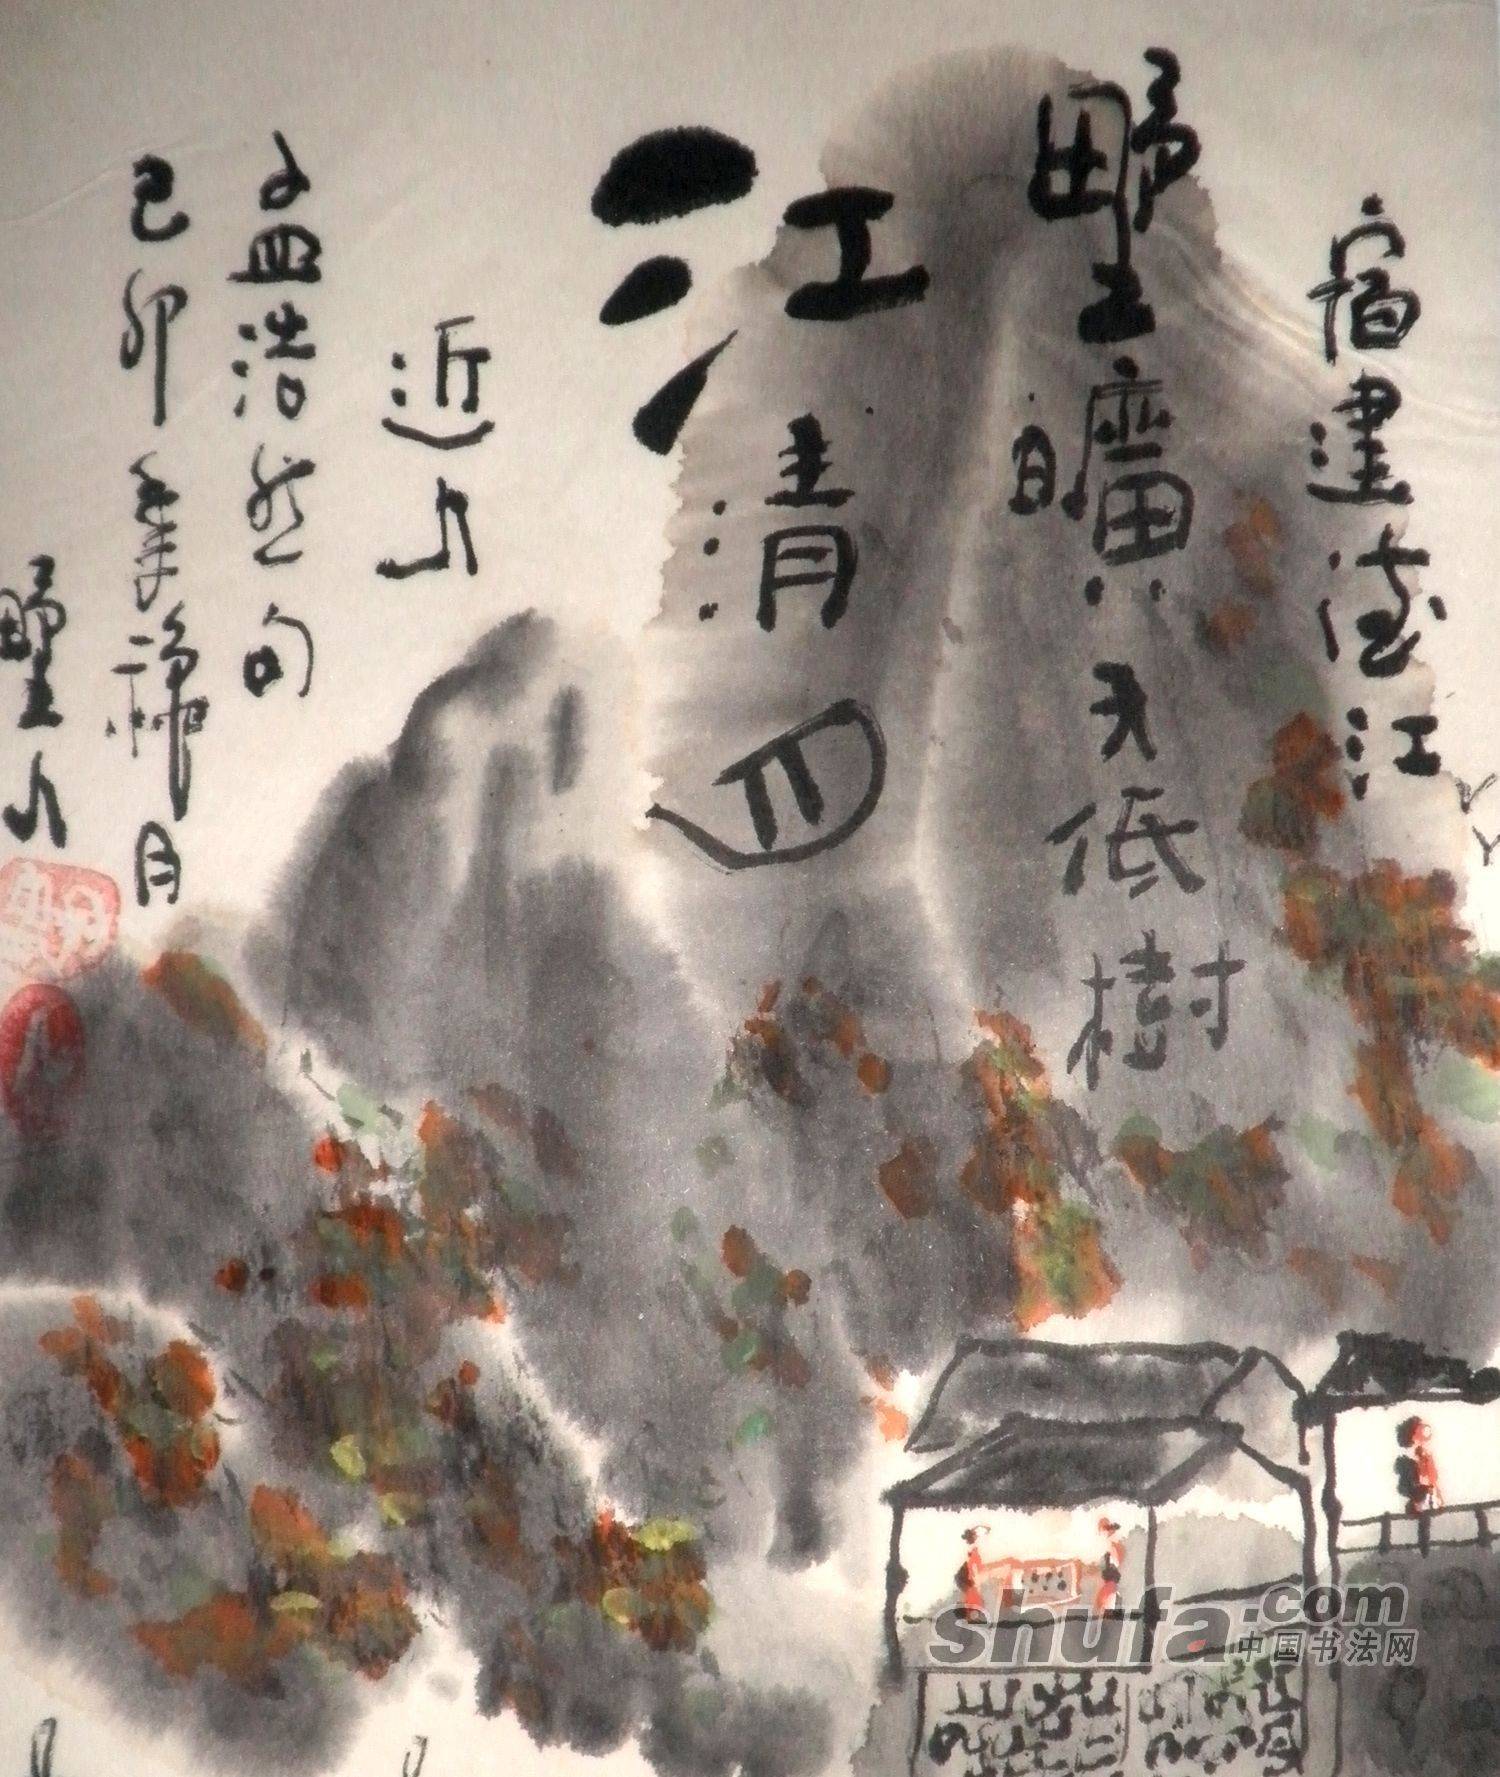 宿建德江
野曠天低樹
江清月
近人
孟浩然句
己卯年月
野人
shufa.com
中国书法网